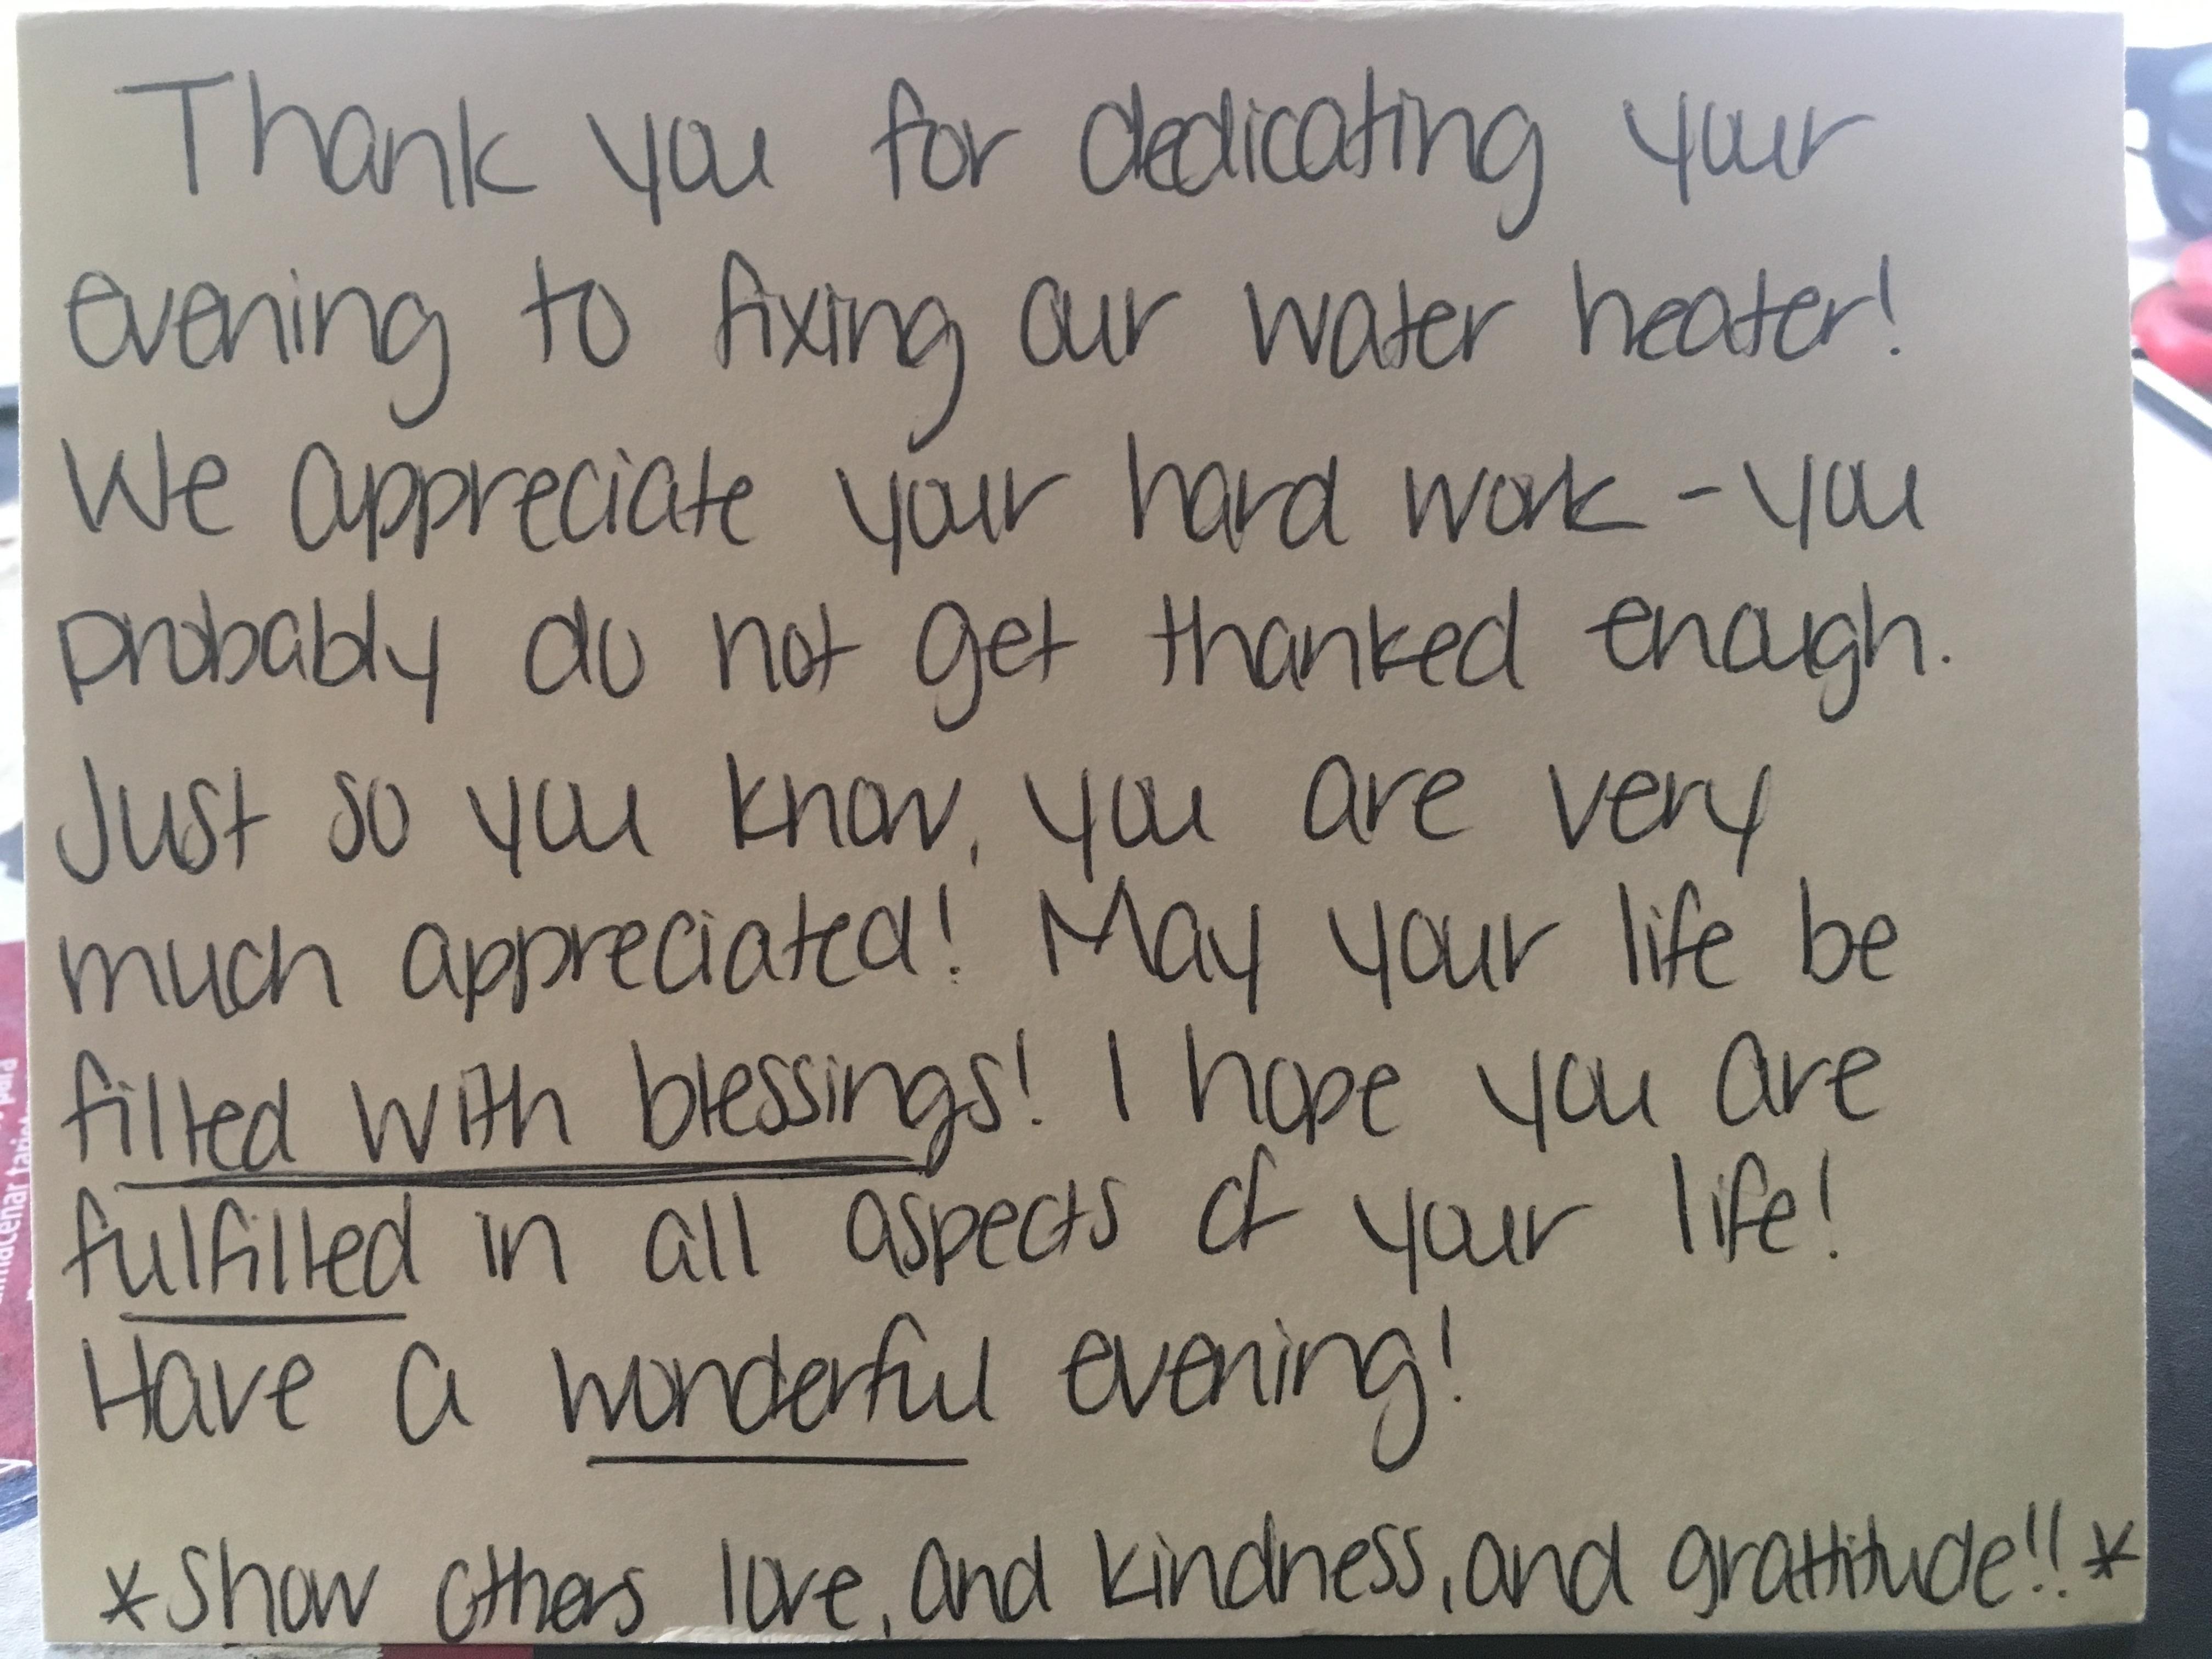 Thank you for dedicating your
evening to fixing our water heater!
We appreciate your hard work - you
probably do not get thanked enough.
Just so you know, you are very
much appreciated! May your life be
filled with blessings! I hope you are
fulfilled in all aspects of your life!
Have a wonderful evening!
*Show others love, and kindness, and grattitude!!*
para